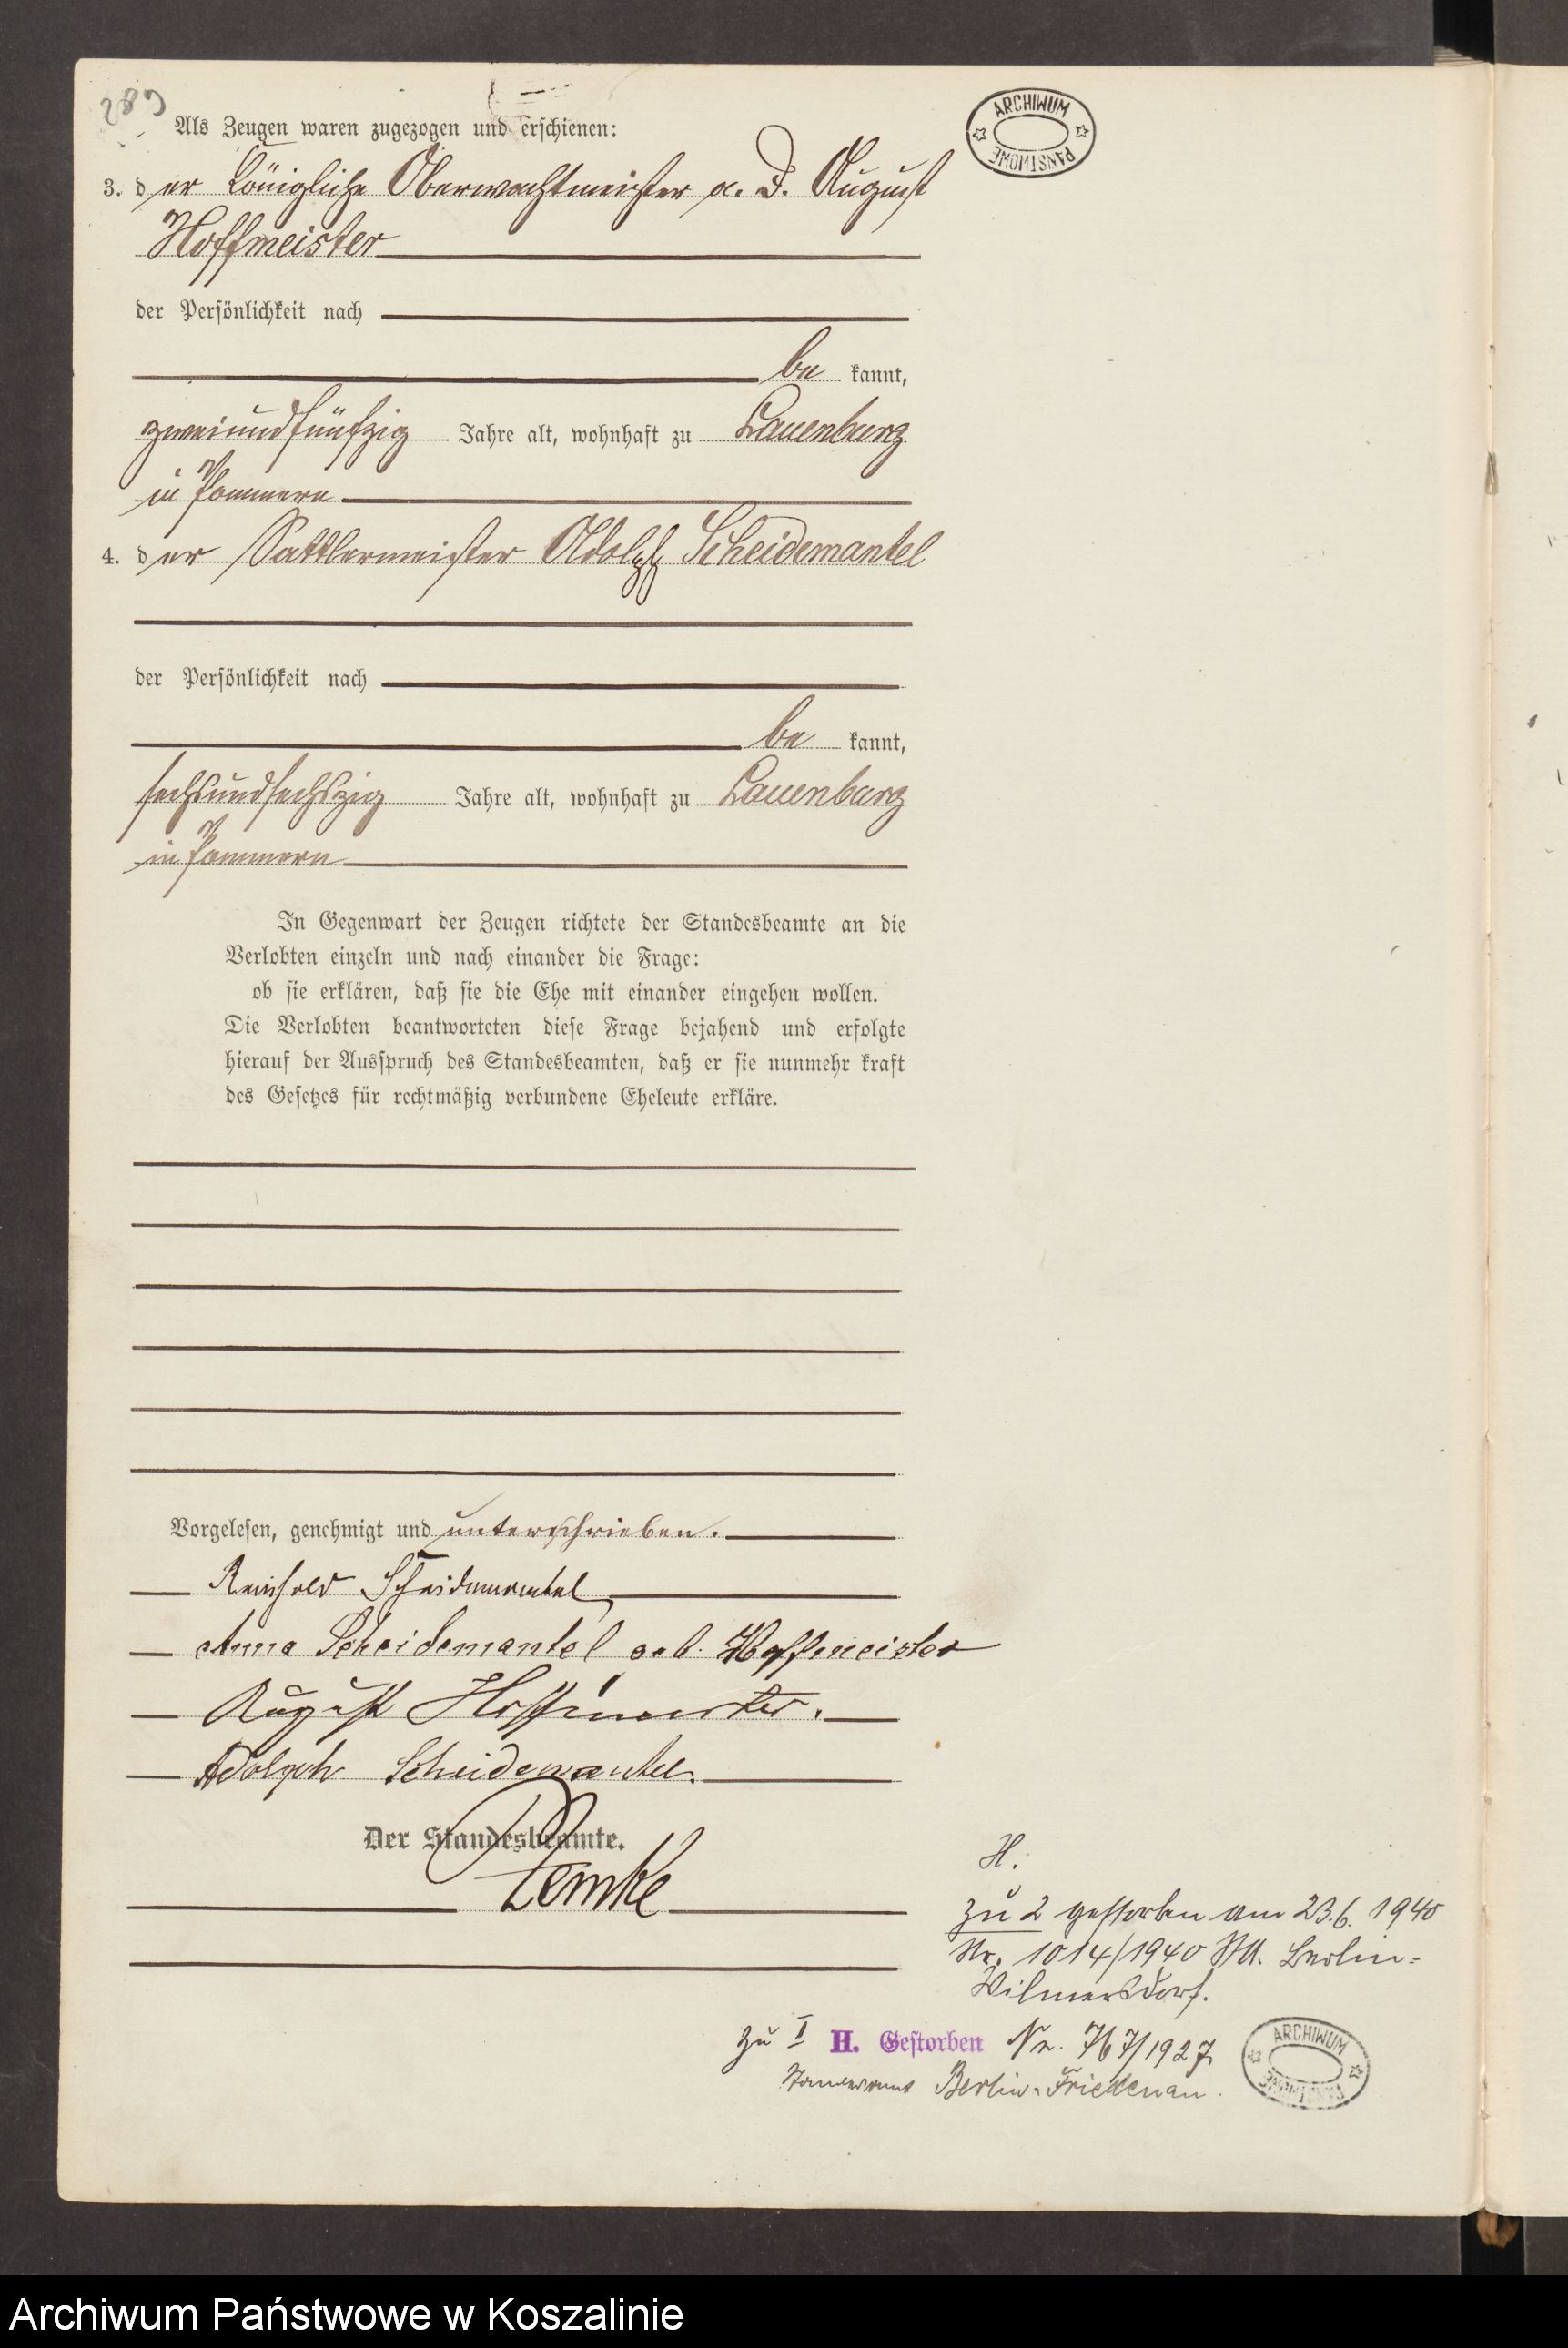 289
Als Zeugen waren zugezogen und erschienen:
ARCHIWUM PAŃSTWOWE
3. der königliche Oberwachtmeister a. D. August
Hoffmeister
der Persönlichkeit nach
be kannt,
zweiundfünfzig Jahre alt, wohnhaft zu Lauenburg
in Pommern
4. der Sattlermeister Adolph Scheidemantel
der Persönlichkeit nach
be kannt,
sechsundsechszig Jahre alt, wohnhaft zu Lauenburg
in Pommern
In Gegenwart der Zeugen richtete der Standesbeamte an die
Verlobten einzeln und nach einander die Frage:
ob sie erklären, daß sie die Ehe mit einander eingehen wollen.
Die Verlobten beantworteten diese Frage bejahend und erfolgte
hierauf der Ausspruch des Standesbeamten, daß er sie nunmehr kraft
des Gesetzes für rechtmäßig verbundene Eheleute erkläre.
Vorgelesen, genehmigt und unterschrieben.
Reinhold Scheidemantel
Anna Scheidemantel geb. Hoffmeister
August Hoffmeister.
Adolph Scheidemantel.
Der Standesbeamte.
Lemke
H.
zu 2 gestorben am 23.6.1940
Nr. 1014/1940 StA. Berlin-
Wilmersdorf.
zu I H. Gestorben Nr. 767/1927
Standesamt Berlin-Friedenau.
ARCHIWUM PAŃSTWOWE
Archiwum Państwowe w Koszalinie